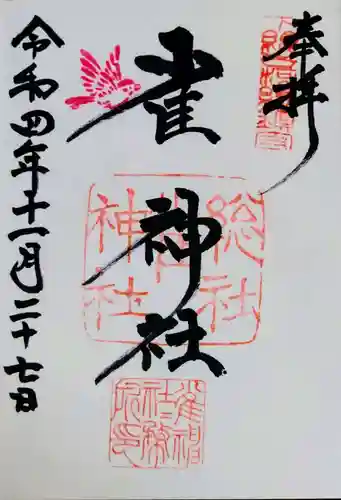 奉拝
雀神社
令和四年十一月二十七日
総社
神社
雀神
社務
之印